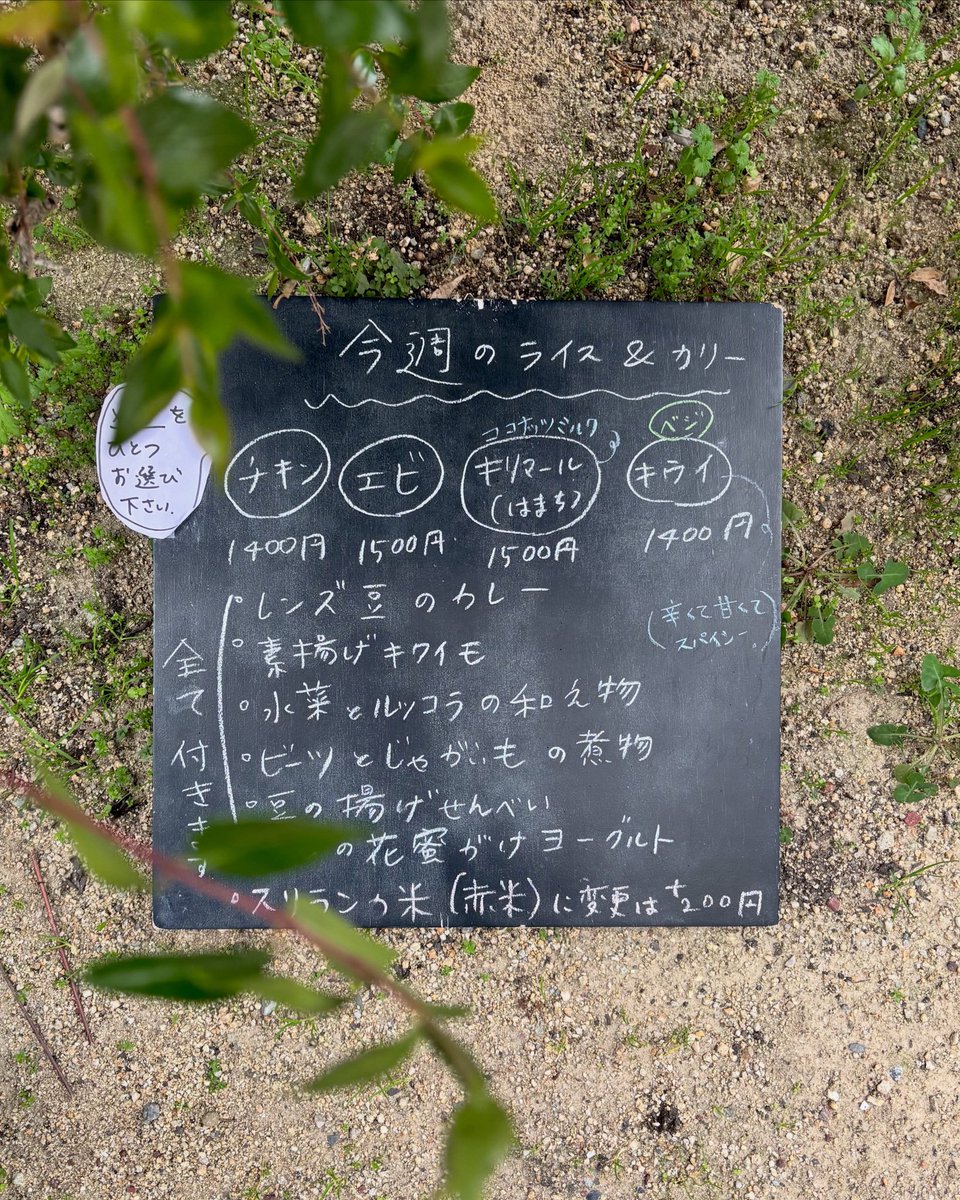 今週のライス&カリー
を
ひとつ
お選び
下さい.
チキン
1400円
エビ
1500円
ココナッツミルク
キリマール
(はまち)
1500円
ベジ
キライ
1400円
(辛くて甘くて
スパイシー。)
全て付きます
・レンズ豆のカレー
・素揚げキワイモ
・水菜とルッコラの和え物
・ビーツとじゃがいもの煮物
・豆の揚げせんべい
の花蜜がけヨーグルト
・スリランカ米(赤米)に変更は+200円